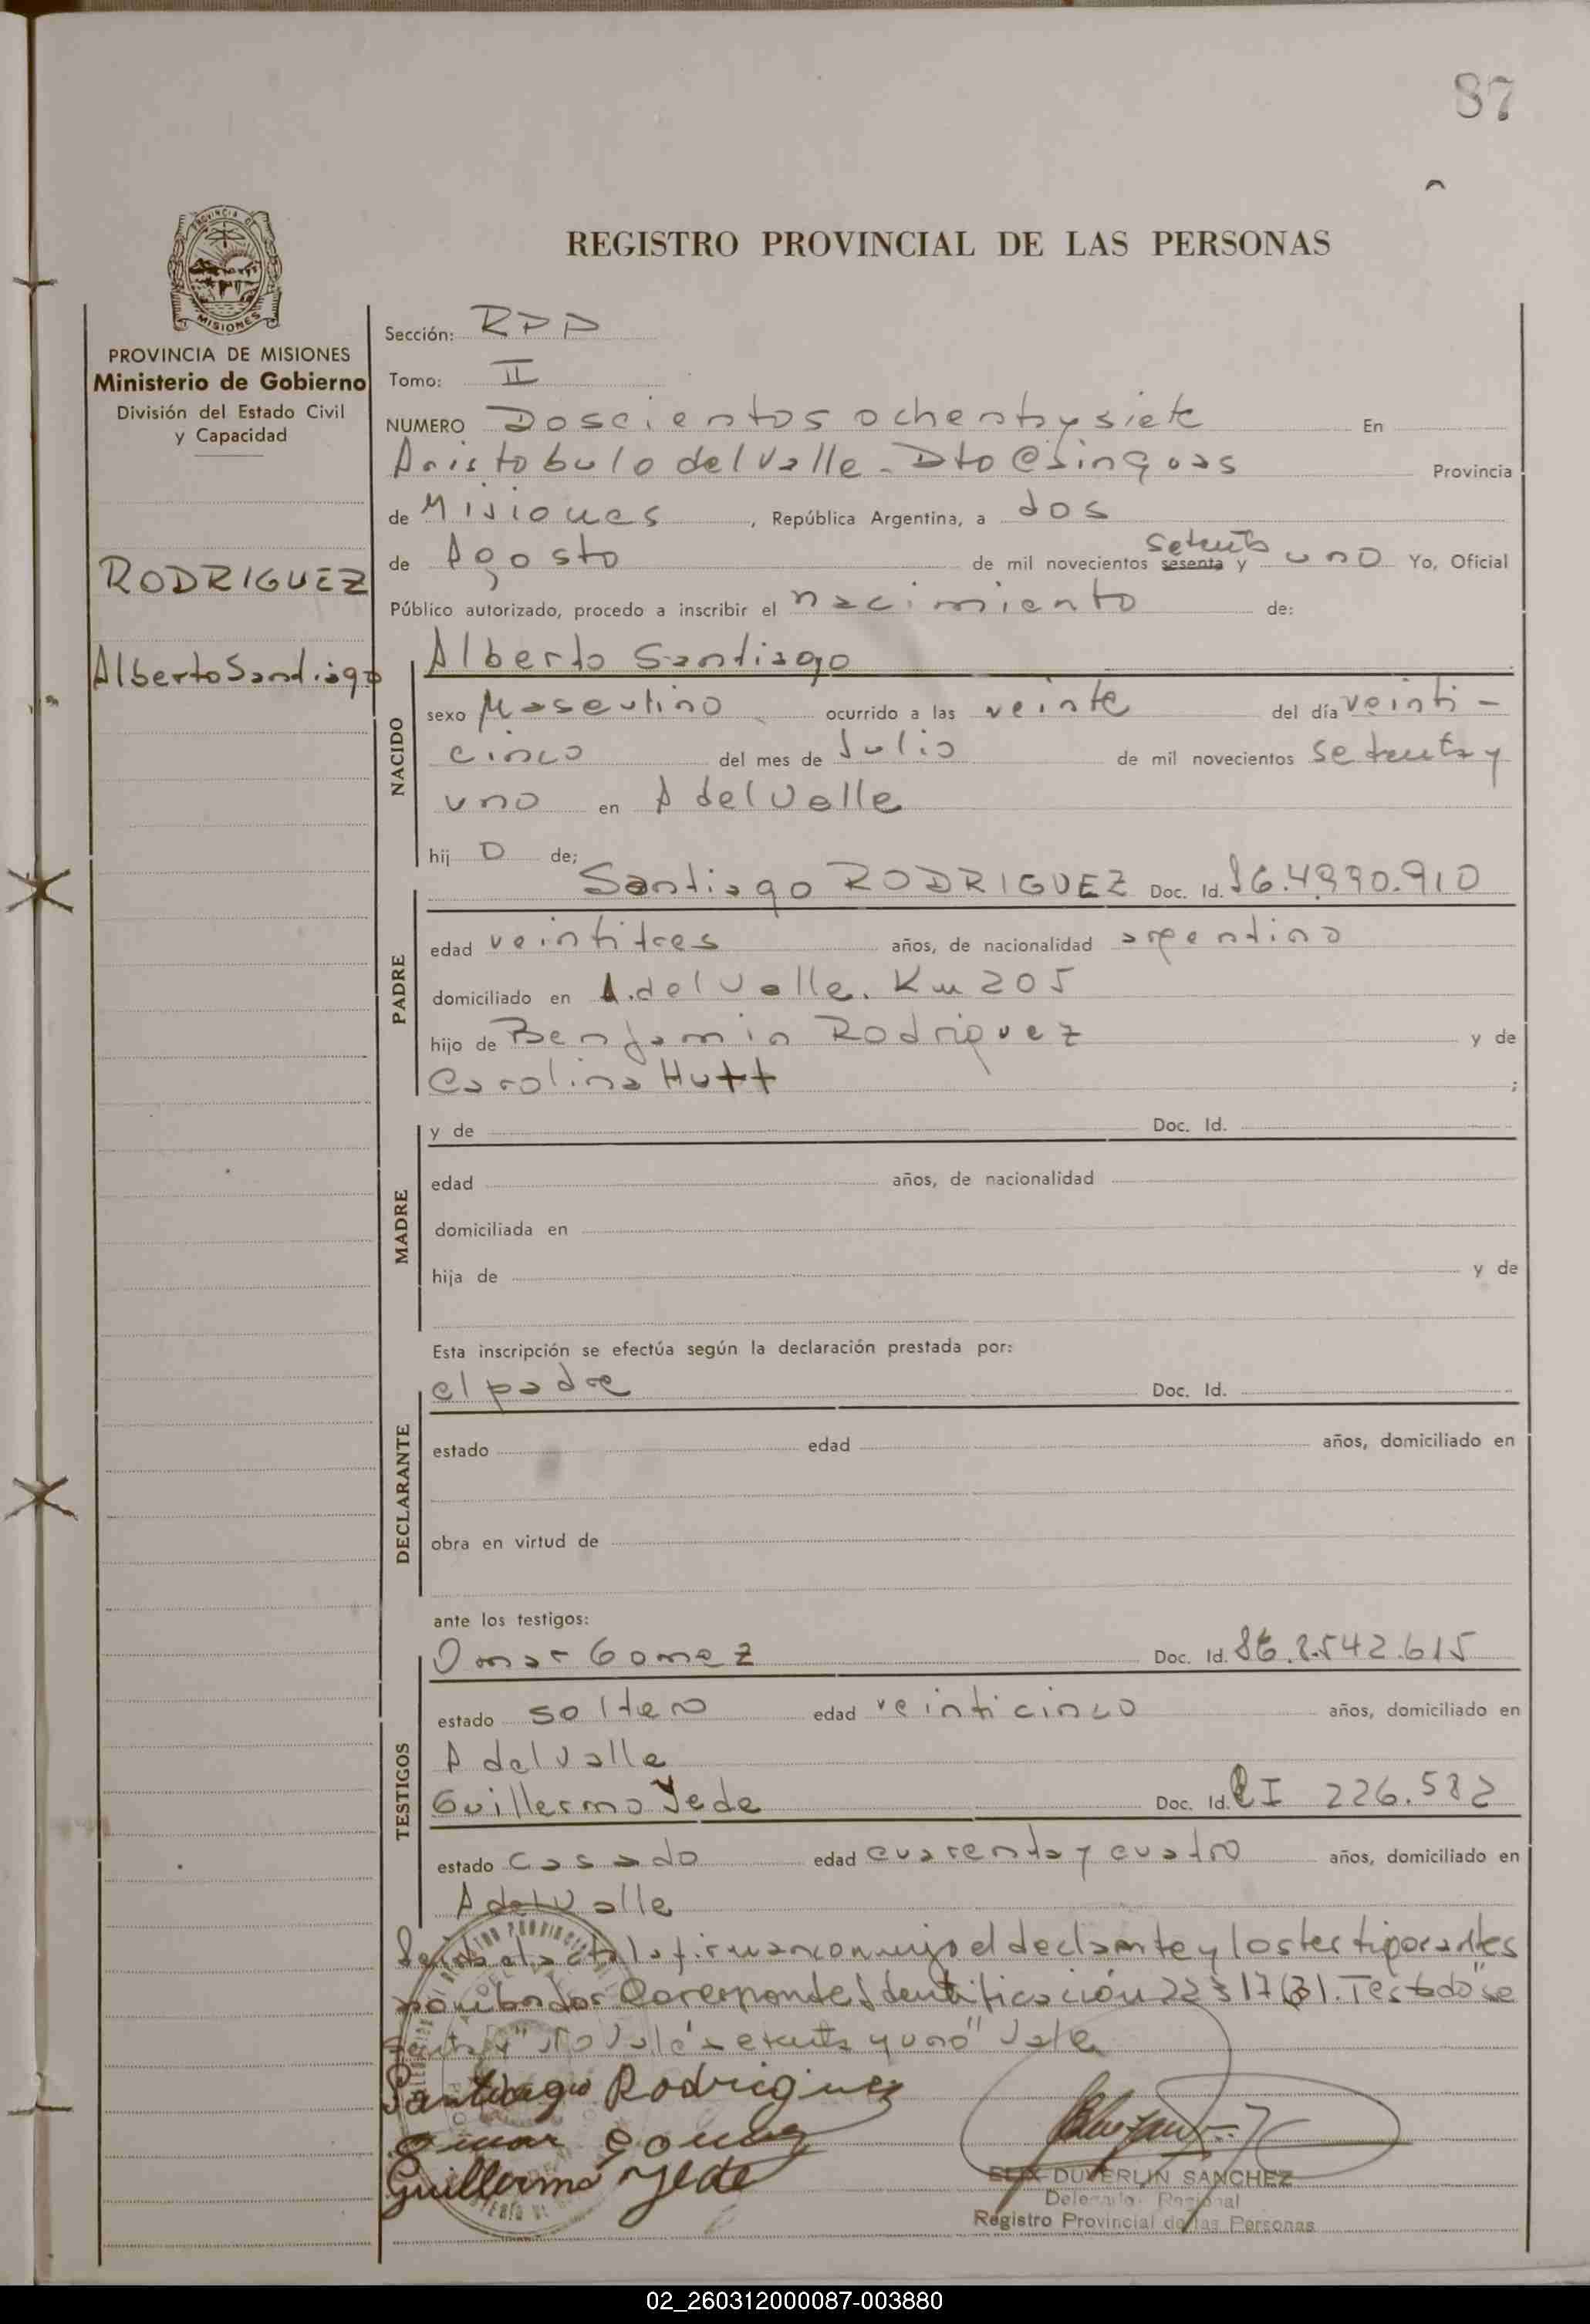 87
REGISTRO PROVINCIAL DE LAS PERSONAS
PROVINCIA DE MISIONES
MISIONES
PROVINCIA DE MISIONES
Ministerio de Gobierno
División del Estado Civil
y Capacidad
RODRIGUEZ
Alberto Santiago
Sección: RPP
Tomo: II
NUMERO Doscientos ochenta y siete En
Aristobulo del Valle - Dto Cainguas Provincia
de Misiones, República Argentina, a dos
setenta
de Agosto de mil novecientos sesenta y uno Yo, Oficial
Público autorizado, procedo a inscribir el nacimiento de:
NACIDO
Alberto Santiago
sexo Masculino ocurrido a las veinte del día veinti-
cinco del mes de Julio de mil novecientos setenta y
uno en A del Valle
hij o de;
PADRE
Santiago RODRIGUEZ Doc. Id.
edad veintitres años, de nacionalidad argentino
domiciliado en A. del Valle. Km 205
hijo de Benjamin Rodriguez y de
Carolina Hutt ;
MADRE
y de Doc. Id.
edad años, de nacionalidad
domiciliada en
hija de y de
Esta inscripción se efectúa según la declaración prestada por:
DECLARANTE
el padre Doc. Id.
estado edad años, domiciliado en
obra en virtud de
ante los testigos:
TESTIGOS
Omar Gomez Doc. Id. 8.542.615
estado soltero edad veinticinco años, domiciliado en
A del Valle
Guillermo Yede Doc. Id. CI 226.582
estado casado edad cuarenta y cuatro años, domiciliado en
A del Valle
Leida el acta la firman conmigo el declarante y los testigos antes
nombrados Corresponde Identificación Testado "se
senta y" No Vale "setenta y uno" Vale
Santiago Rodriguez
Omar Gomez
Guillermo Yede
DUVERLIN SANCHEZ
Delegado Regional
Registro Provincial de las Personas
02_260312000087-003880